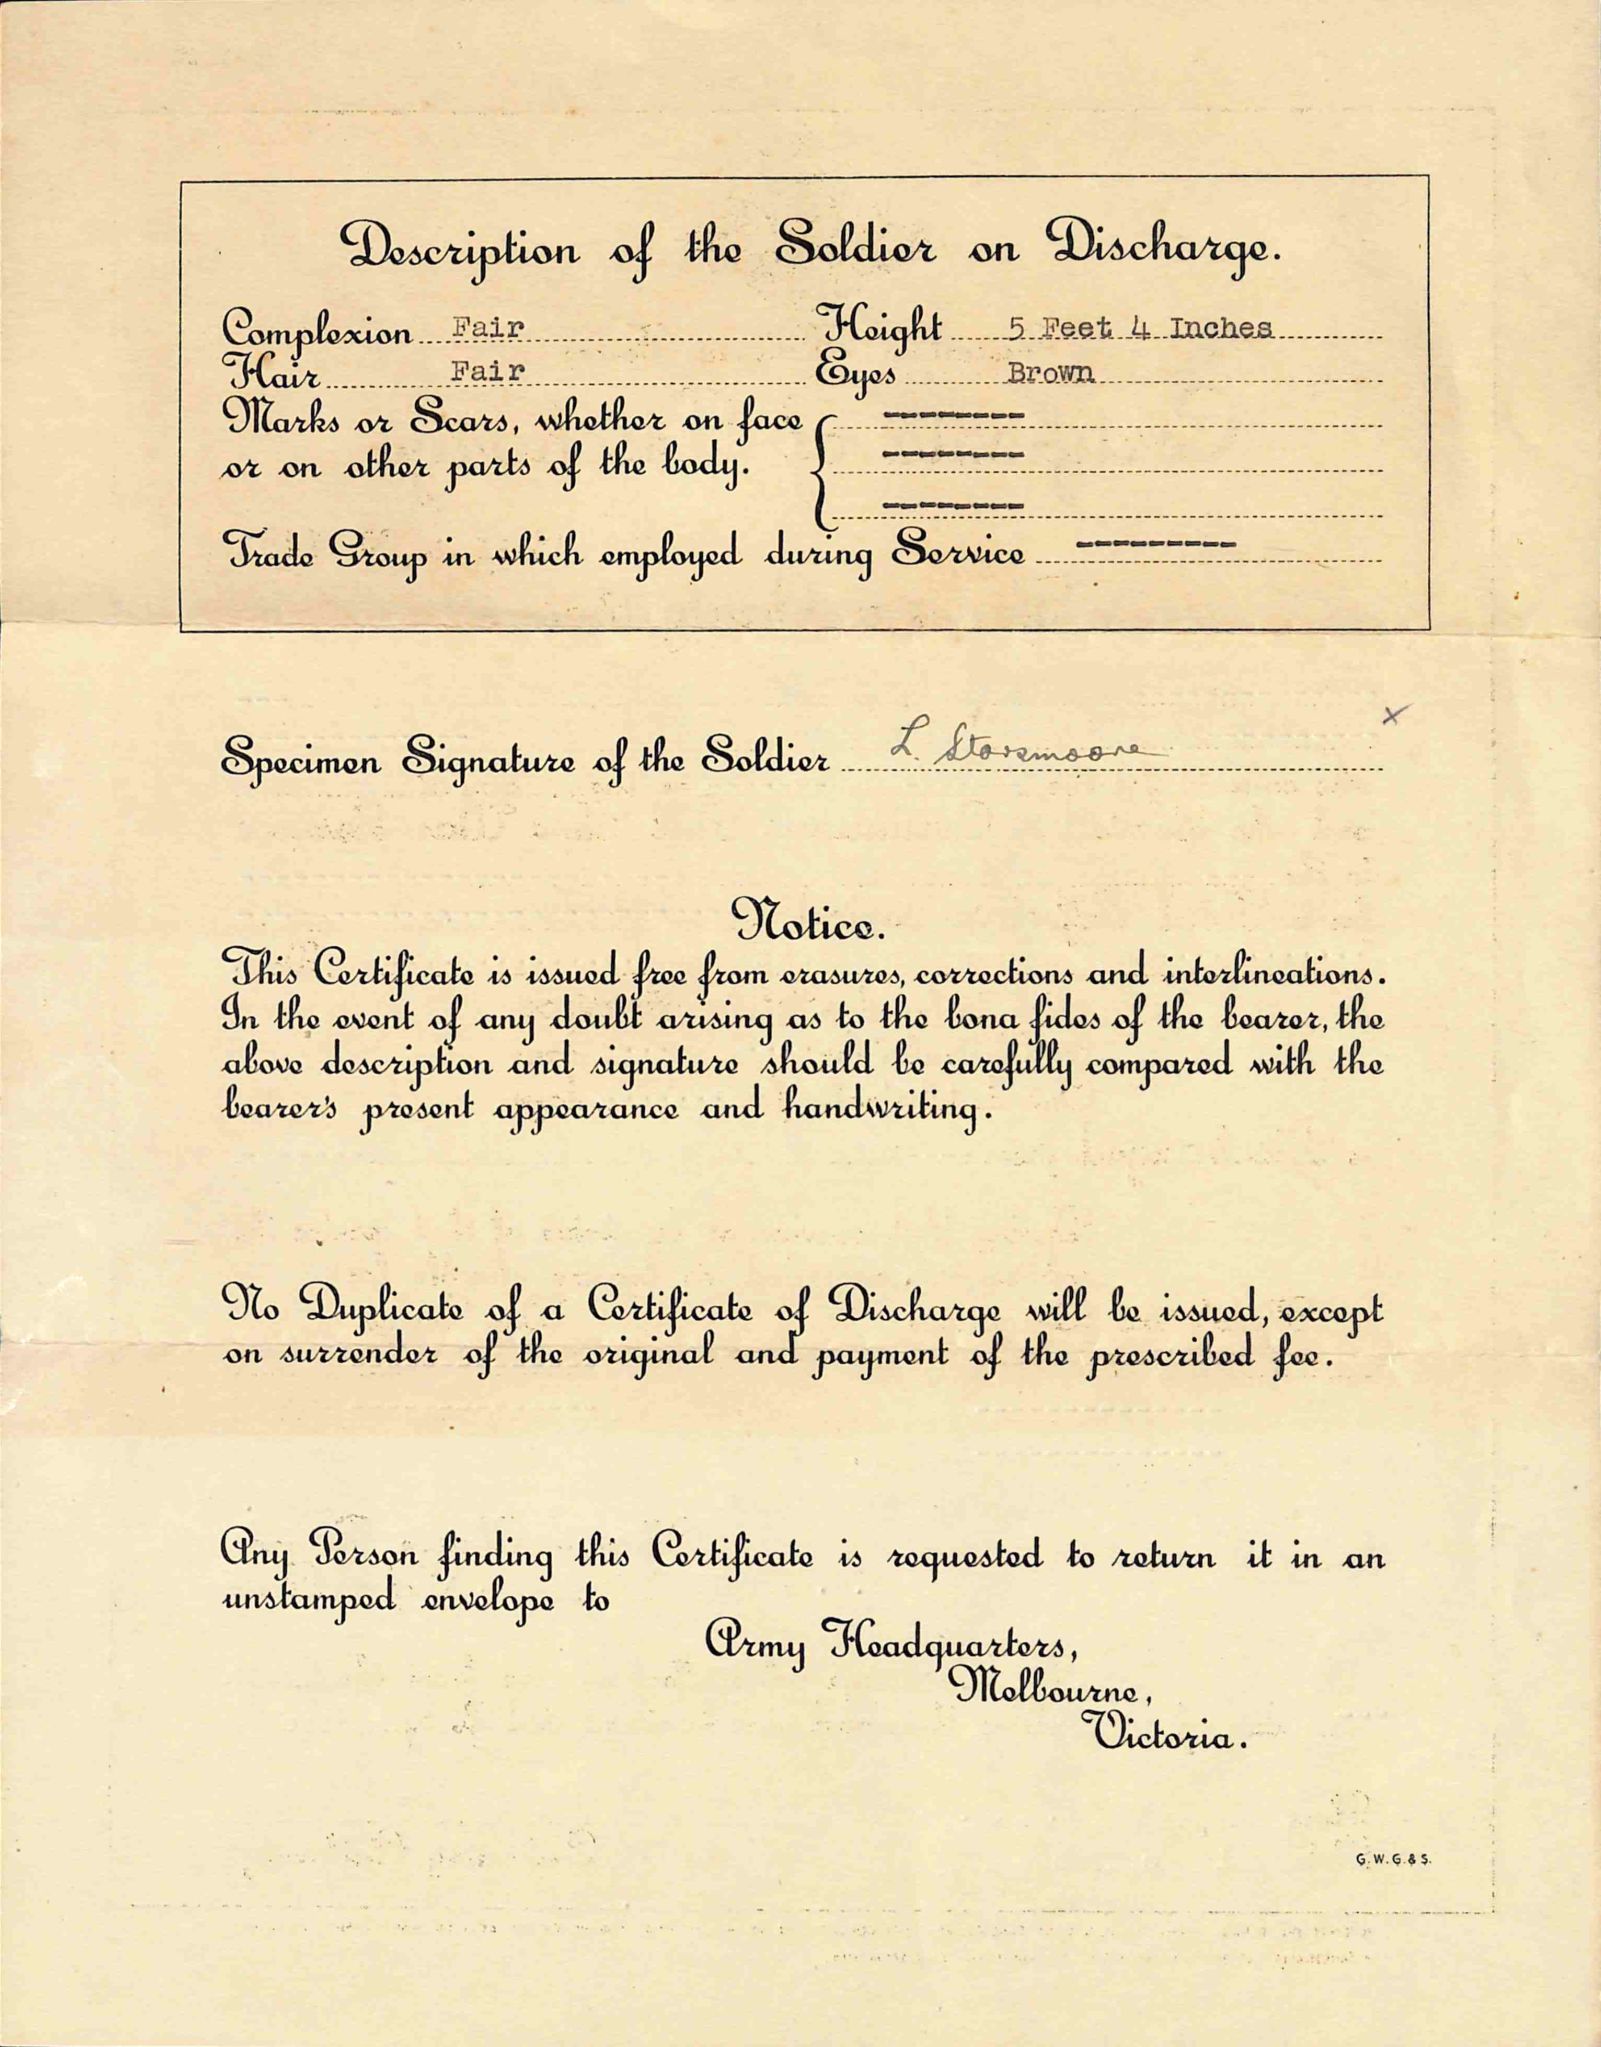 Description of the Soldier on Discharge.
Complexion Fair Height 5 Feet 4 Inches
Hair Fair Eyes Brown
Marks or Scars, whether on face
or on other parts of the body.
Trade Group in which employed during Service
Specimen Signature of the Soldier L. Storsmoore
Notice.
This Certificate is issued free from erasures, corrections and interlineations.
In the event of any doubt arising as to the bona fides of the bearer, the
above description and signature should be carefully compared with the
bearer's present appearance and handwriting.
No Duplicate of a Certificate of Discharge will be issued, except
on surrender of the original and payment of the prescribed fee.
Any Person finding this Certificate is requested to return it in an
unstamped envelope to
Army Headquarters,
Melbourne,
Victoria.
G. W. G. & S.